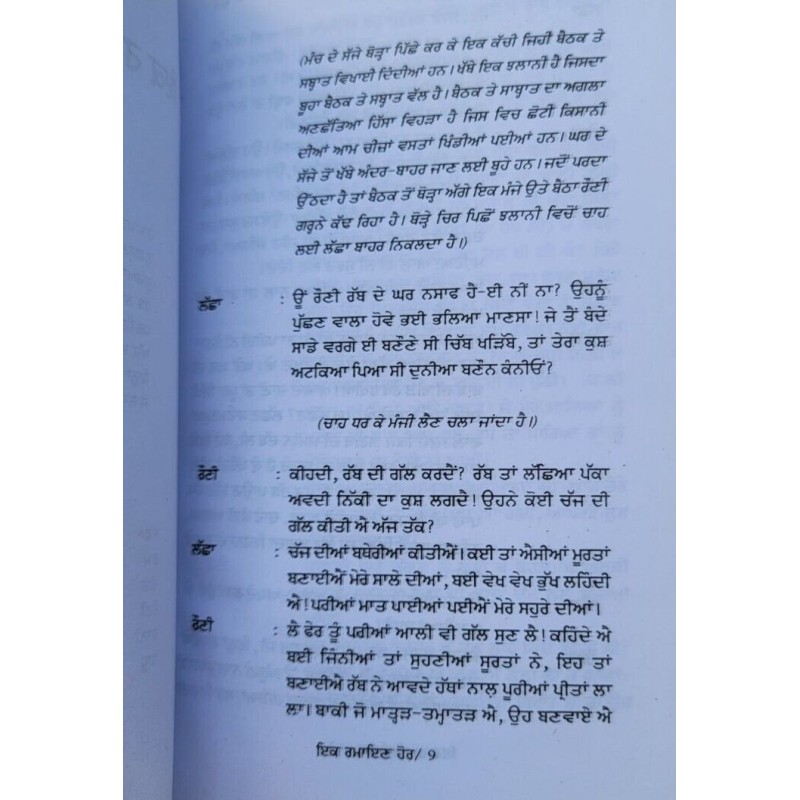 (ਮੰਚ ਦੇ ਸੱਜੇ ਥੋੜ੍ਹਾ ਪਿੱਛੇ ਕਰ ਕੇ ਇਕ ਕੱਚੀ ਜਿਹੀ ਬੈਠਕ ਤੇ
ਸਬ੍ਹਾਤ ਵਿਖਾਈ ਦਿੰਦੀਆਂ ਹਨ। ਖੱਬੇ ਇਕ ਝਲਾਨੀ ਹੈ ਜਿਸਦਾ
ਬੂਹਾ ਬੈਠਕ ਤੇ ਸਬ੍ਹਾਤ ਵੱਲ ਹੈ। ਬੈਠਕ ਤੇ ਸਾਬ੍ਹਾਤ ਦਾ ਅਗਲਾ
ਅਣਛੱਤਿਆ ਹਿੱਸਾ ਵਿਹੜਾ ਹੈ ਜਿਸ ਵਿਚ ਛੋਟੀ ਕਿਸਾਨੀ
ਦੀਆਂ ਆਮ ਚੀਜ਼ਾਂ ਵਸਤਾਂ ਖਿੰਡੀਆਂ ਪਈਆਂ ਹਨ। ਘਰ ਦੇ
ਸੱਜੇ ਤੋਂ ਖੱਬੇ ਅੰਦਰ-ਬਾਹਰ ਜਾਣ ਲਈ ਬੂਹੇ ਹਨ। ਜਦੋਂ ਪਰਦਾ
ਉੱਠਦਾ ਹੈ ਤਾਂ ਬੈਠਕ ਤੋਂ ਥੋੜ੍ਹਾ ਅੱਗੇ ਇਕ ਮੰਜੇ ਉਤੇ ਬੈਠਾ ਰੌਣੀ
ਗਰ੍ਹਨੇ ਕੱਢ ਰਿਹਾ ਹੈ। ਥੋੜ੍ਹੇ ਚਿਰ ਪਿਛੋਂ ਝਲਾਨੀ ਵਿਚੋਂ ਚਾਹ
ਲਈ ਲੱਛਾ ਬਾਹਰ ਨਿਕਲਦਾ ਹੈ।)
ਲੱਛਾ : ਊਂ ਰੌਣੀ ਰੱਬ ਦੇ ਘਰ ਨਸਾਫ ਹੈ-ਈ ਨੀਂ ਨਾ? ਉਹਨੂੰ
ਪੁੱਛਣ ਵਾਲਾ ਹੋਵੇ ਭਈ ਭਲਿਆ ਮਾਣਸਾ! ਜੇ ਤੈਂ ਬੰਦੇ
ਸਾਡੇ ਵਰਗੇ ਈ ਬਣੌਣੇ ਸੀ ਚਿੱਬ ਖੜਿੱਬੇ, ਤਾਂ ਤੇਰਾ ਕੁਸ਼
ਅਟਕਿਆ ਪਿਆ ਸੀ ਦੁਨੀਆ ਬਣੌਨ ਕੰਨੀਓਂ?
(ਚਾਹ ਧਰ ਕੇ ਮੰਜੀ ਲੈਣ ਚਲਾ ਜਾਂਦਾ ਹੈ।)
ਰੌਣੀ : ਕੀਹਦੀ, ਰੱਬ ਦੀ ਗੱਲ ਕਰਦੈਂ? ਰੱਬ ਤਾਂ ਲੱਛਿਆ ਪੱਕਾ
ਅਵਦੀ ਨਿੱਕੀ ਦਾ ਕੁਸ਼ ਲਗਦੈ! ਉਹਨੇ ਕੋਈ ਚੱਜ ਦੀ
ਗੱਲ ਕੀਤੀ ਐ ਅੱਜ ਤੱਕ?
ਲੱਛਾ : ਚੱਜ ਦੀਆਂ ਬਥੇਰੀਆਂ ਕੀਤੀਐਂ! ਕਈ ਤਾਂ ਐਸੀਆਂ ਮੂਰਤਾਂ
ਬਣਾਈਐਂ ਮੇਰੇ ਸਾਲੇ ਦੀਆਂ, ਬਈ ਵੇਖ ਵੇਖ ਭੁੱਖ ਲਹਿੰਦੀ
ਐ! ਪਰੀਆਂ ਮਾਤ ਪਾਈਆਂ ਪਈਐਂ ਮੇਰੇ ਸਹੁਰੇ ਦੀਆਂ।
ਰੌਣੀ : ਲੈ ਫੇਰ ਤੂੰ ਪਰੀਆਂ ਆਲੀ ਵੀ ਗੱਲ ਸੁਣ ਲੈ! ਕਹਿੰਦੇ ਐ
ਬਈ ਜਿੰਨੀਆਂ ਤਾਂ ਸੁਹਣੀਆਂ ਸੂਰਤਾਂ ਨੇ, ਇਹ ਤਾਂ
ਬਣਾਈਐ ਰੱਬ ਨੇ ਆਵਦੇ ਹੱਥਾਂ ਨਾਲ਼ ਪੂਰੀਆਂ ਪ੍ਰੀਤਾਂ ਲਾ
ਲਾ। ਬਾਕੀ ਜੋ ਮਾਤ੍ਹੜ-ਤਮ੍ਹਾਤੜ ਐ, ਉਹ ਬਣਵਾਏ ਐ
ਇਕ ਰਮਾਇਣ ਹੋਰ/ 9